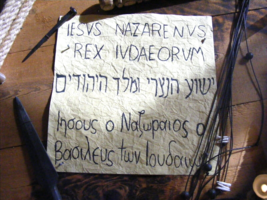 IESVS NAZARENVS
REX IVDAEORVM
ישוע הנצרי ומלך היהודים
Ιησους ο Ναζωραιος ο
βασιλευς των Ιουδαιω